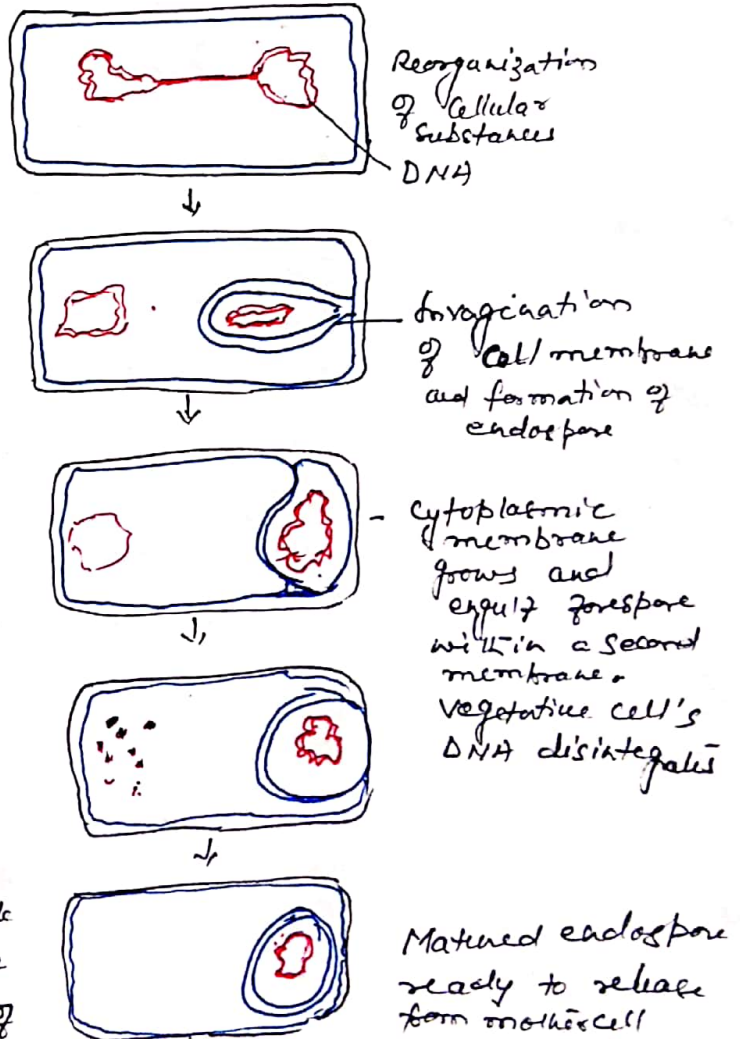 Reorganization
of Cellular
substances
DNA
Invagination
of Cell membrane
and formation of
endospore
Cytoplasmic
membrane
grows and
engulf forespore
within a second
membrane.
Vegetative cell's
DNA disintegrates
Matured endospore
ready to release
from mother cell
of